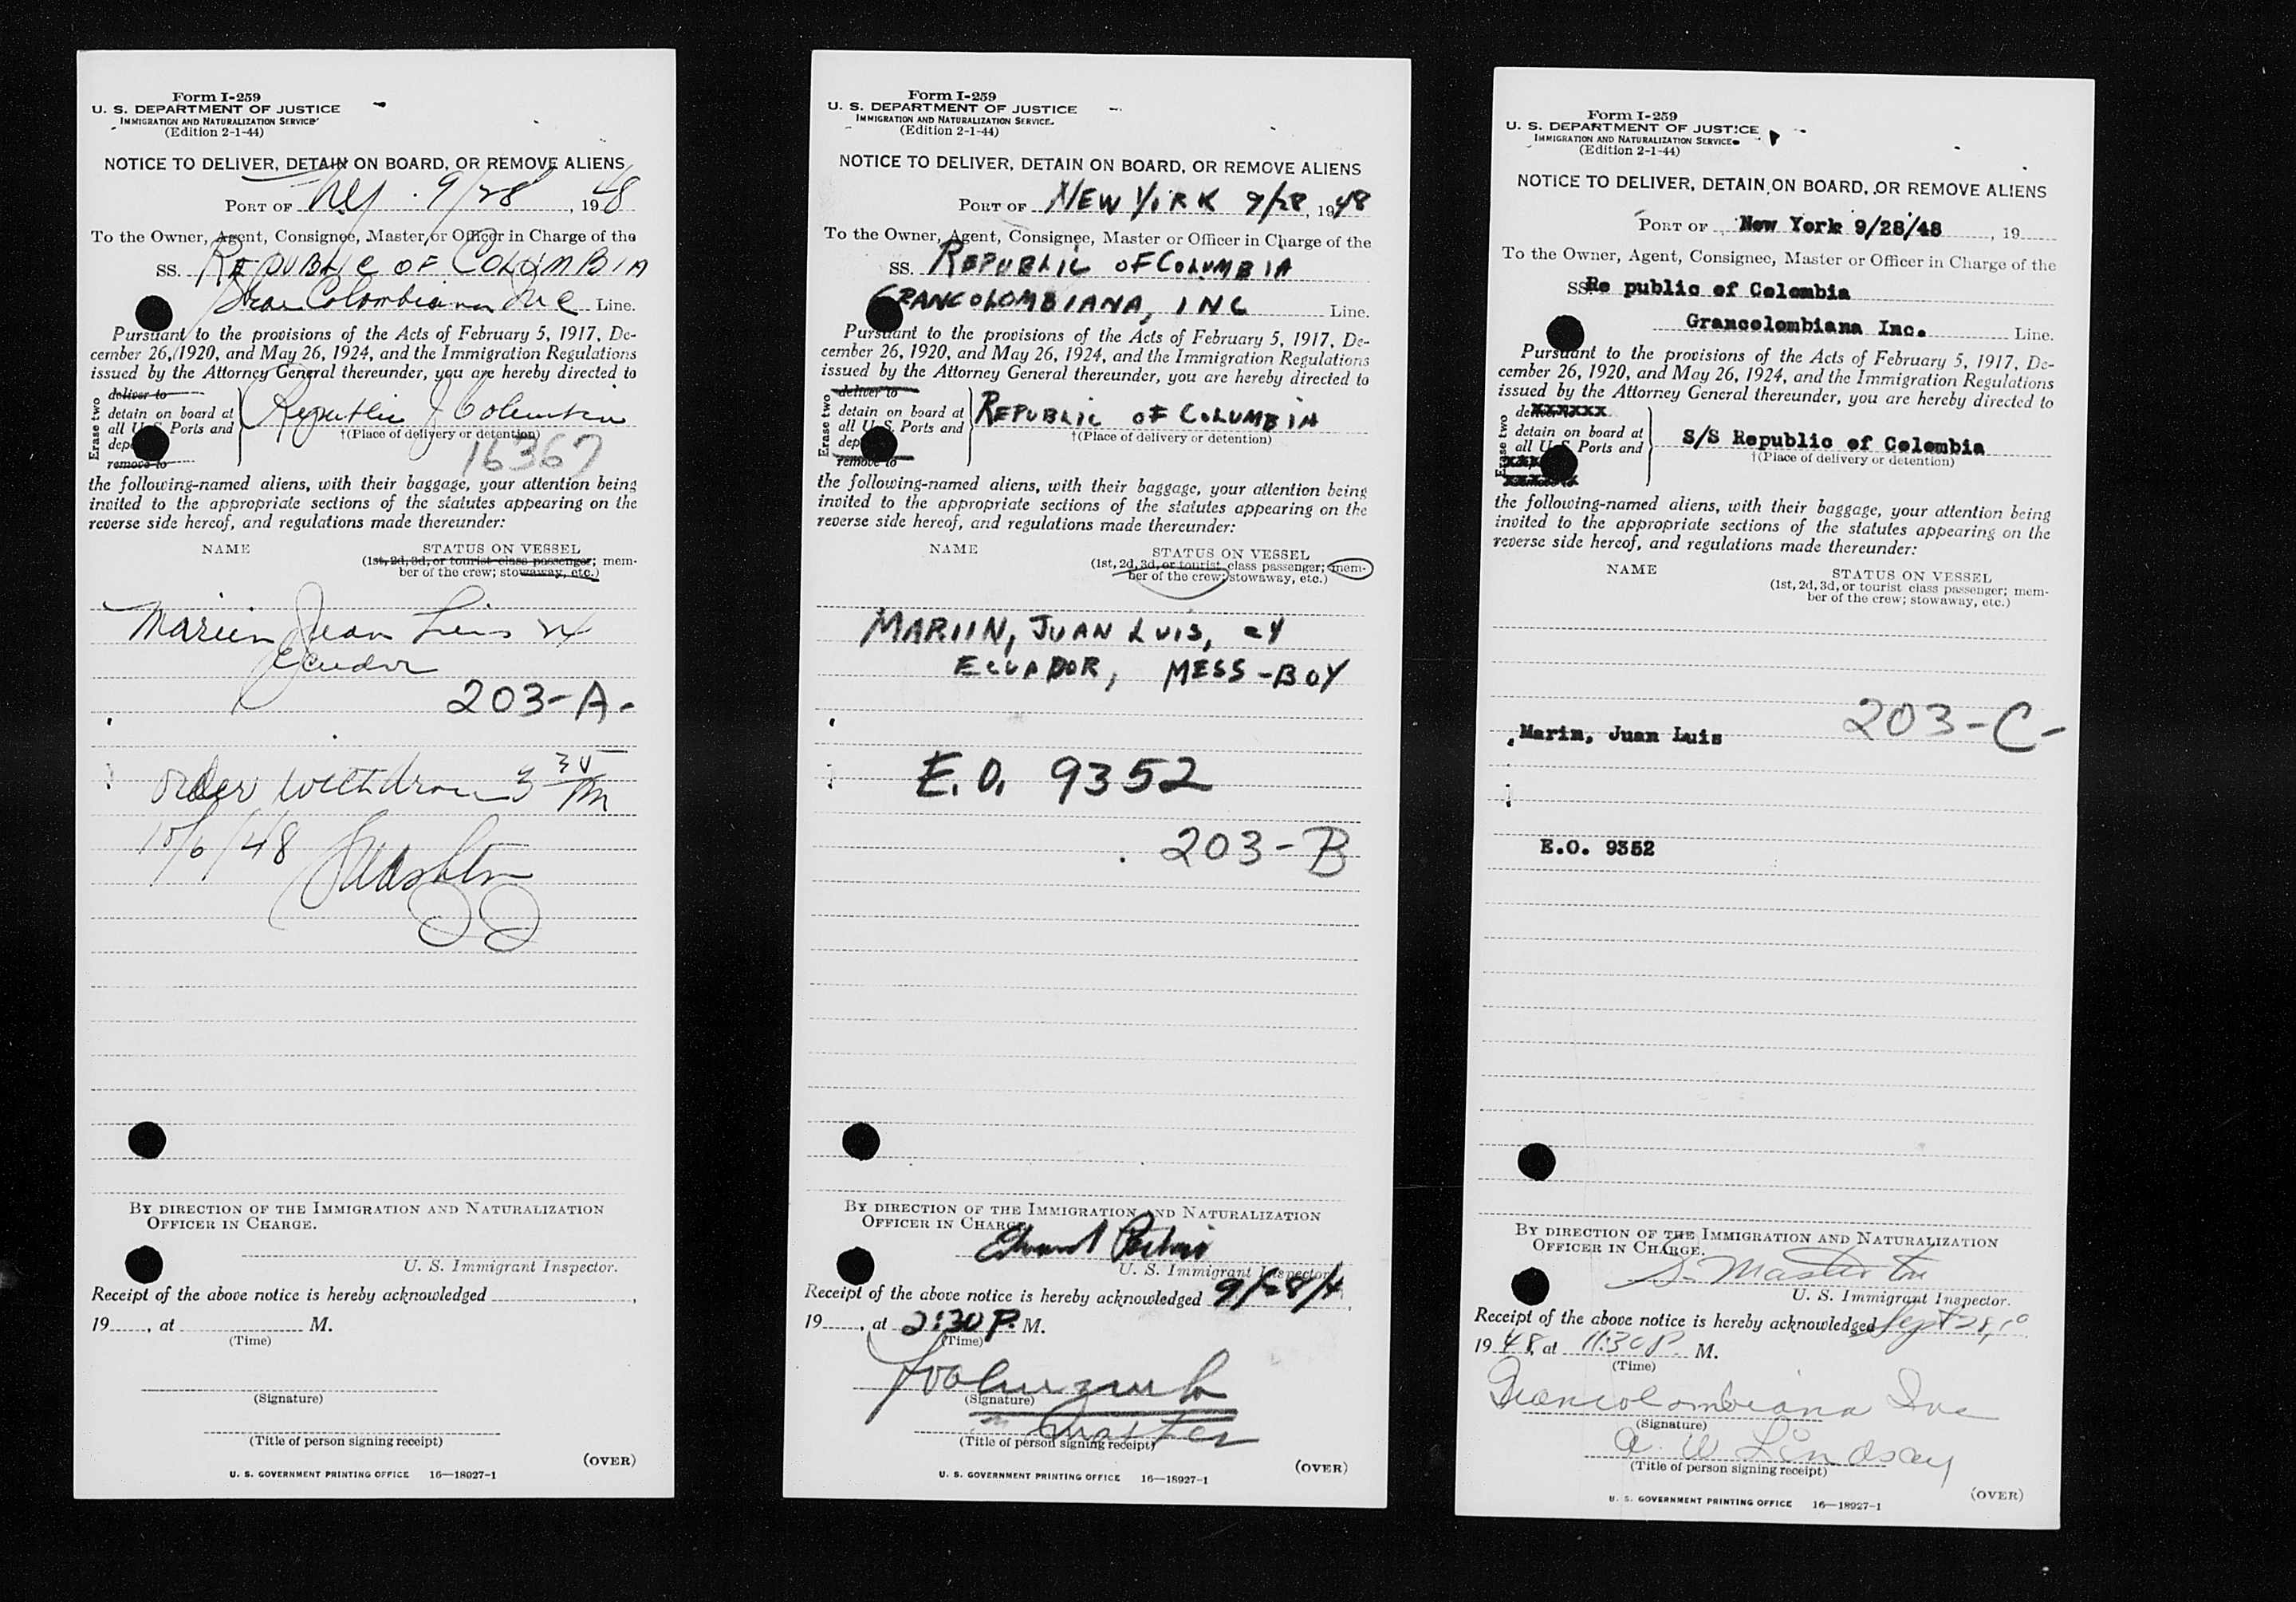 Form I-259
U. S. DEPARTMENT OF JUSTICE
IMMIGRATION AND NATURALIZATION SERVICE
(Edition 2-1-44)
NOTICE TO DELIVER, DETAIN ON BOARD, OR REMOVE ALIENS
PORT OF N.Y. 9/28, 1948
To the Owner, Agent, Consignee, Master, or Officer in Charge of the
SS. REPUBLIC OF COLOMBIA
Gran Colombiana Inc Line.
Pursuant to the provisions of the Acts of February 5, 1917, De-
cember 26, 1920, and May 26, 1924, and the Immigration Regulations
issued by the Attorney General thereunder, you are hereby directed to
Erase two
deliver to
detain on board at
all U. S. Ports and
dep
remove to
Republic of Columbia
†(Place of delivery or detention)
16367
the following-named aliens, with their baggage, your attention being
invited to the appropriate sections of the statutes appearing on the
reverse side hereof, and regulations made thereunder:
NAME STATUS ON VESSEL
(1st, 2d, 3d, or tourist class passenger; mem-
ber of the crew; stowaway, etc.)
Mariin Juan Luis 24
Ecuador
203-A-
Order withdrawn 3 30 PM
10/6/48
BY DIRECTION OF THE IMMIGRATION AND NATURALIZATION
OFFICER IN CHARGE.
U. S. Immigrant Inspector.
Receipt of the above notice is hereby acknowledged
19 , at M.
(Time)
(Signature)
(Title of person signing receipt)
(OVER)
U. S. GOVERNMENT PRINTING OFFICE 16—18927-1
Form I-259
U. S. DEPARTMENT OF JUSTICE
IMMIGRATION AND NATURALIZATION SERVICE
(Edition 2-1-44)
NOTICE TO DELIVER, DETAIN ON BOARD, OR REMOVE ALIENS
PORT OF NEW YORK 9/28, 1948
To the Owner, Agent, Consignee, Master or Officer in Charge of the
SS. REPUBLIC OF COLUMBIA
GRANCOLOMBIANA, INC Line.
Pursuant to the provisions of the Acts of February 5, 1917, De-
cember 26, 1920, and May 26, 1924, and the Immigration Regulations
issued by the Attorney General thereunder, you are hereby directed to
Erase two
deliver to
detain on board at
all U. S. Ports and
dep
remove to
REPUBLIC OF COLUMBIA
†(Place of delivery or detention)
the following-named aliens, with their baggage, your attention being
invited to the appropriate sections of the statutes appearing on the
reverse side hereof, and regulations made thereunder:
NAME STATUS ON VESSEL
(1st, 2d, 3d, or tourist class passenger; mem-
ber of the crew; stowaway, etc.)
MARIIN, JUAN LUIS, 24
ECUADOR, MESS-BOY
E.O. 9352
203-B
BY DIRECTION OF THE IMMIGRATION AND NATURALIZATION
OFFICER IN CHARGE.
Edward
U. S. Immigrant Inspector.
Receipt of the above notice is hereby acknowledged 9/28/4
19 , at 2:30 P. M.
(Time)
(Signature)
Master
(Title of person signing receipt)
(OVER)
U. S. GOVERNMENT PRINTING OFFICE 16—18927-1
Form I-259
U. S. DEPARTMENT OF JUSTICE
IMMIGRATION AND NATURALIZATION SERVICE
(Edition 2-1-44)
NOTICE TO DELIVER, DETAIN ON BOARD, OR REMOVE ALIENS
PORT OF New York 9/28/48, 19
To the Owner, Agent, Consignee, Master or Officer in Charge of the
SS. Re public of Colombia
Grancolombiana Inc. Line.
Pursuant to the provisions of the Acts of February 5, 1917, De-
cember 26, 1920, and May 26, 1924, and the Immigration Regulations
issued by the Attorney General thereunder, you are hereby directed to
Erase two
detain on board at
all U. S. Ports and
S/S Republic of Colombia
†(Place of delivery or detention)
the following-named aliens, with their baggage, your attention being
invited to the appropriate sections of the statutes appearing on the
reverse side hereof, and regulations made thereunder:
NAME STATUS ON VESSEL
(1st, 2d, 3d, or tourist class passenger; mem-
ber of the crew; stowaway, etc.)
203-C-
Marin, Juan Luis
E.O. 9352
BY DIRECTION OF THE IMMIGRATION AND NATURALIZATION
OFFICER IN CHARGE.
S. Masterton
U. S. Immigrant Inspector.
Receipt of the above notice is hereby acknowledged Sept 28,
1948, at 11:30 P. M.
(Time)
Grancolombiana Inc
(Signature)
A. W. Lindsay
(Title of person signing receipt)
(OVER)
U. S. GOVERNMENT PRINTING OFFICE 16—18927-1